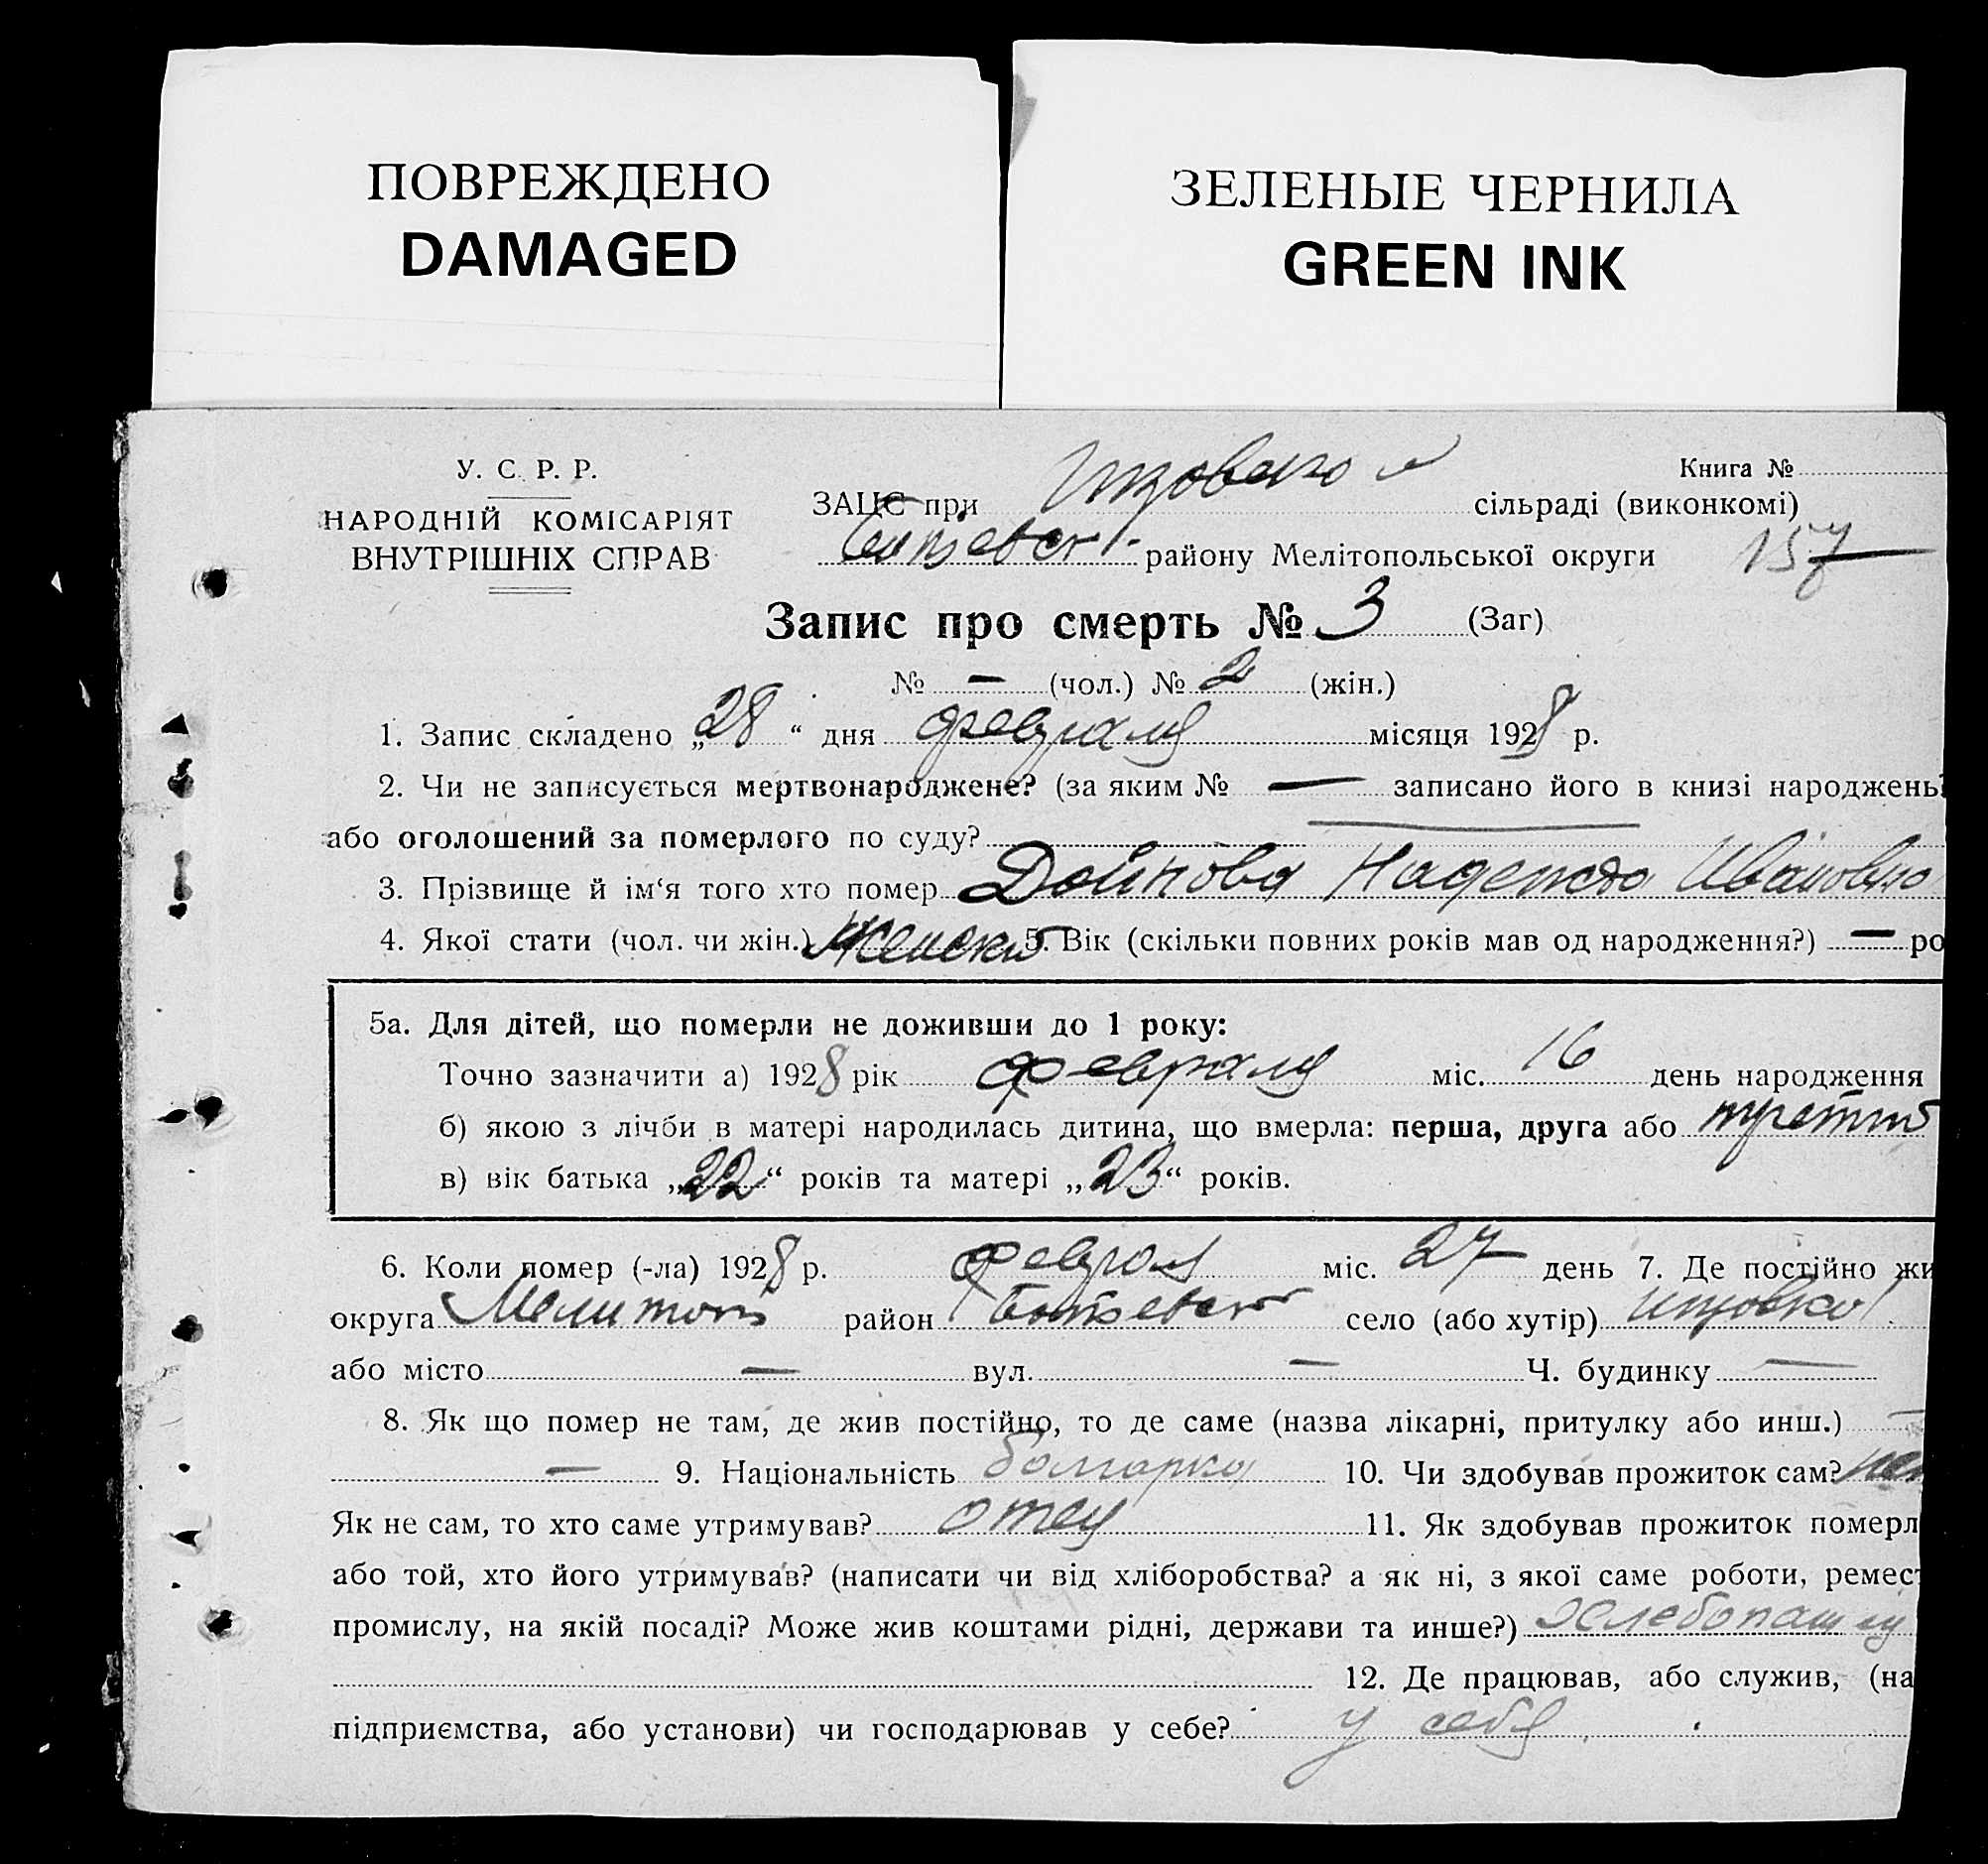 ПОВРЕЖДЕНО
DAMAGED
ЗЕЛЕНЫЕ ЧЕРНИЛА
GREEN INK
У. С. Р. Р.
НАРОДНІЙ КОМІСАРІЯТ
ВНУТРІШНІХ СПРАВ
Книга №
ЗАЦС при сільраді (виконкомі)
району Мелітопольської округи 157
Запис про смерть № 3 (Заг)
№ — (чол.) № 2 (жін.)
1. Запис складено „28“ дня февраля місяця 1928 р.
2. Чи не записується мертвонароджене? (за яким № — записано його в книзі народжень?
або оголошений за померлого по суду?
3. Прізвище й ім‘я того хто помер Дойнова Надежда Ивановна
4. Якої стати (чол. чи жін.) Женска 5. Вік (скільки повних років мав од народження?) — ро
5а. Для дітей, що померли не доживши до 1 року:
Точно зазначити а) 1928 рік февраля міс. 16 день народження
б) якою з лічби в матері народилась дитина, що вмерла: перша, друга або
в) вік батька „22“ років та матері „23“ років.
6. Коли помер (-ла) 1928 р. феврал міс. 27 день 7. Де постійно жи
округа Мелитоп район Ботьевск село (або хутір)
або місто — вул. — Ч. будинку —
8. Як що помер не там, де жив постійно, то де саме (назва лікарні, притулку або инш.) —
— 9. Національність болгарка 10. Чи здобував прожиток сам? нет
Як не сам, то хто саме утримував? отец 11. Як здобував прожиток померл
або той, хто його утримував? (написати чи від хліборобства? а як ні, з якої саме роботи, ремест
промислу, на якій посаді? Може жив коштами рідні, держави та инше?) Хлебопашец
12. Де працював, або служив, (на
підприємства, або установи) чи господарював у себе? у себя